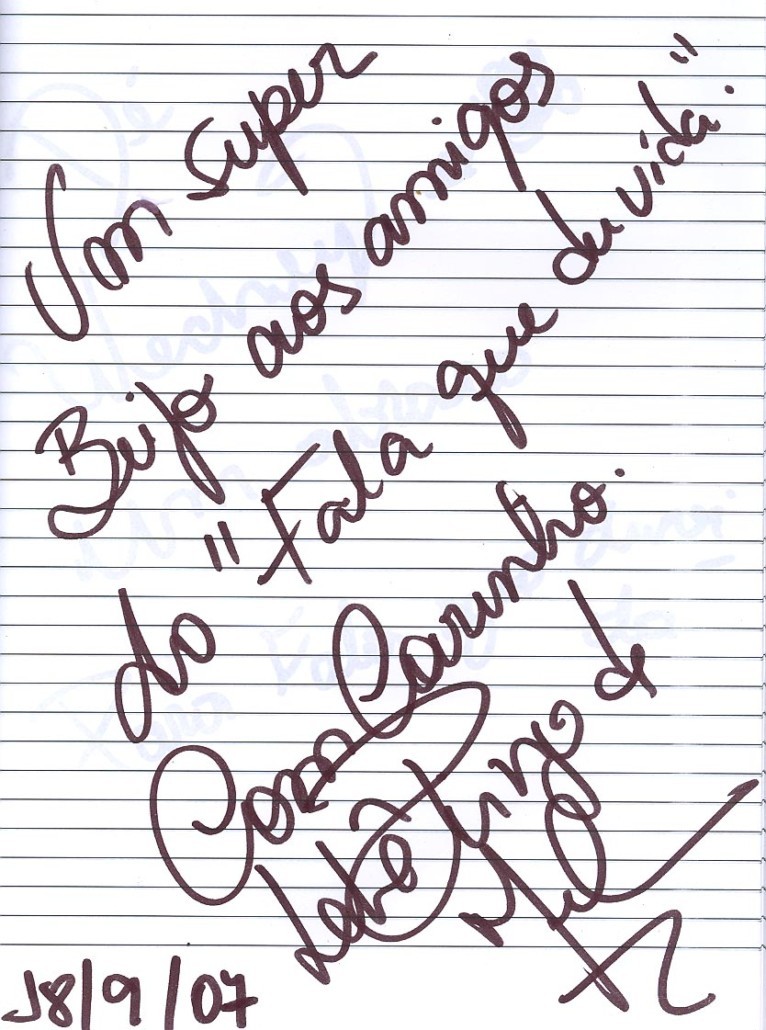 Um super
Beijo aos amigos
do "Fala que
eu vida."
Com Carinho.
de
18/9/07